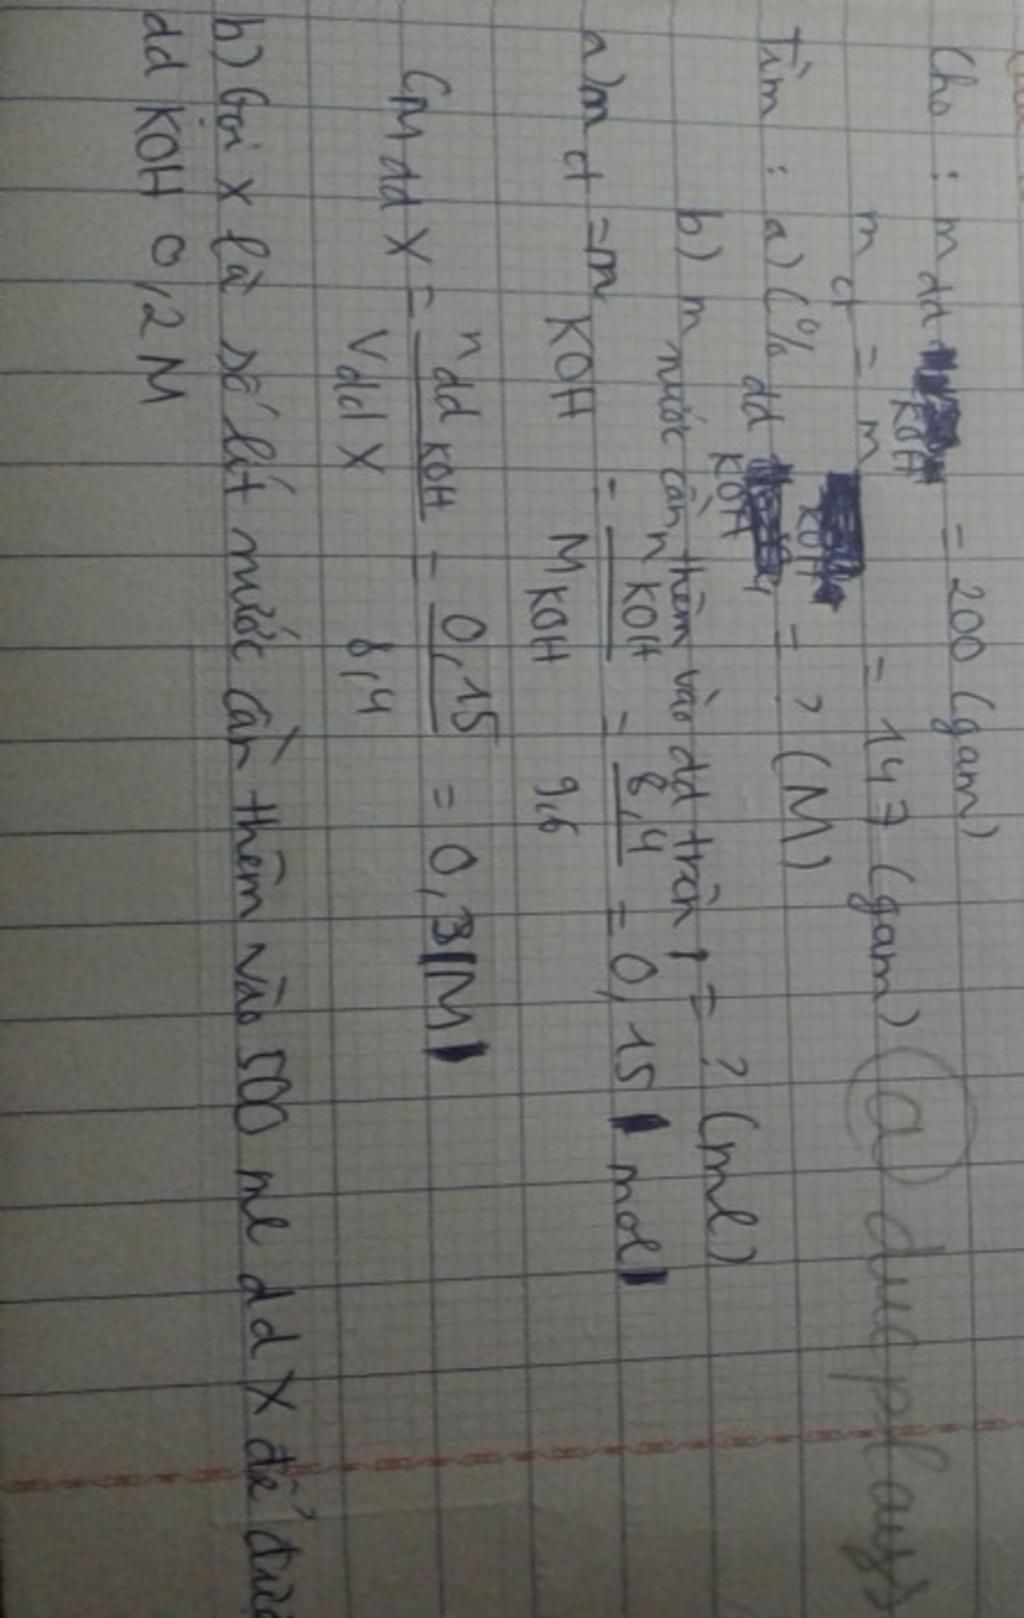 Cho : m dd KOH = 200 (gam)
m ct = m KOH = 147 (gam)
Tìm : a) C% dd KOH = ? (M)
b) m nước cần thêm vào dd trên = ? (ml)
a) m ct = m KOH = n KOH / M KOH = 8,4 / 9,6 = 0,15 mol
CM dd X = n dd KOH / V dd X = 0,15 / 8,4 = 0,3 M
b) Gọi x là số lít nước cần thêm vào 500 ml dd X để đư
dd KOH 0,2 M
@ducplays